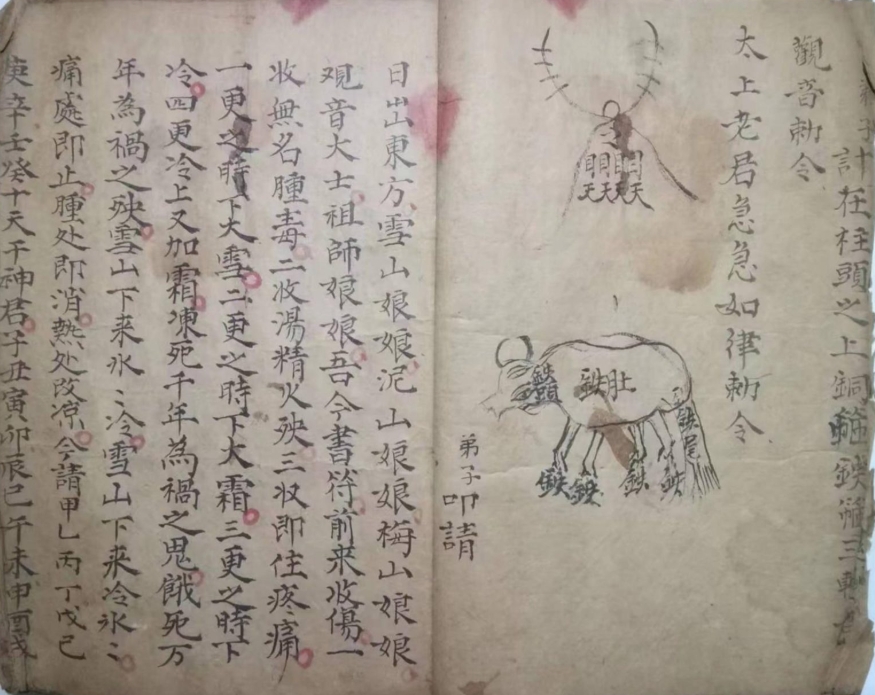 弟子計在柱頭之上銅箍鉄箍三
觀音勅令
太上老君急急如律勅令
天天天天
鉄頭
鉄肚
鉄尾
鉄
鉄
鉄
鉄
弟子叩請
日出東方雪山娘娘泥山娘娘梅山娘娘
观音大士祖師娘娘吾今書符前来收傷一
收無名腫毒二收湯精火殃三收即住疼痛
一更之時下大雪二更之時下大霜三更之時下
冷四更冷上又加霜凍死千年為禍之鬼餓死万
年為禍之殃雪山下来氷〻冷雪山下来冷氷〻
痛處即止腫处即消熱处改凉今請甲乙丙丁戊己
庚辛壬癸十天干神君子丑寅卯辰巳午未申酉戌